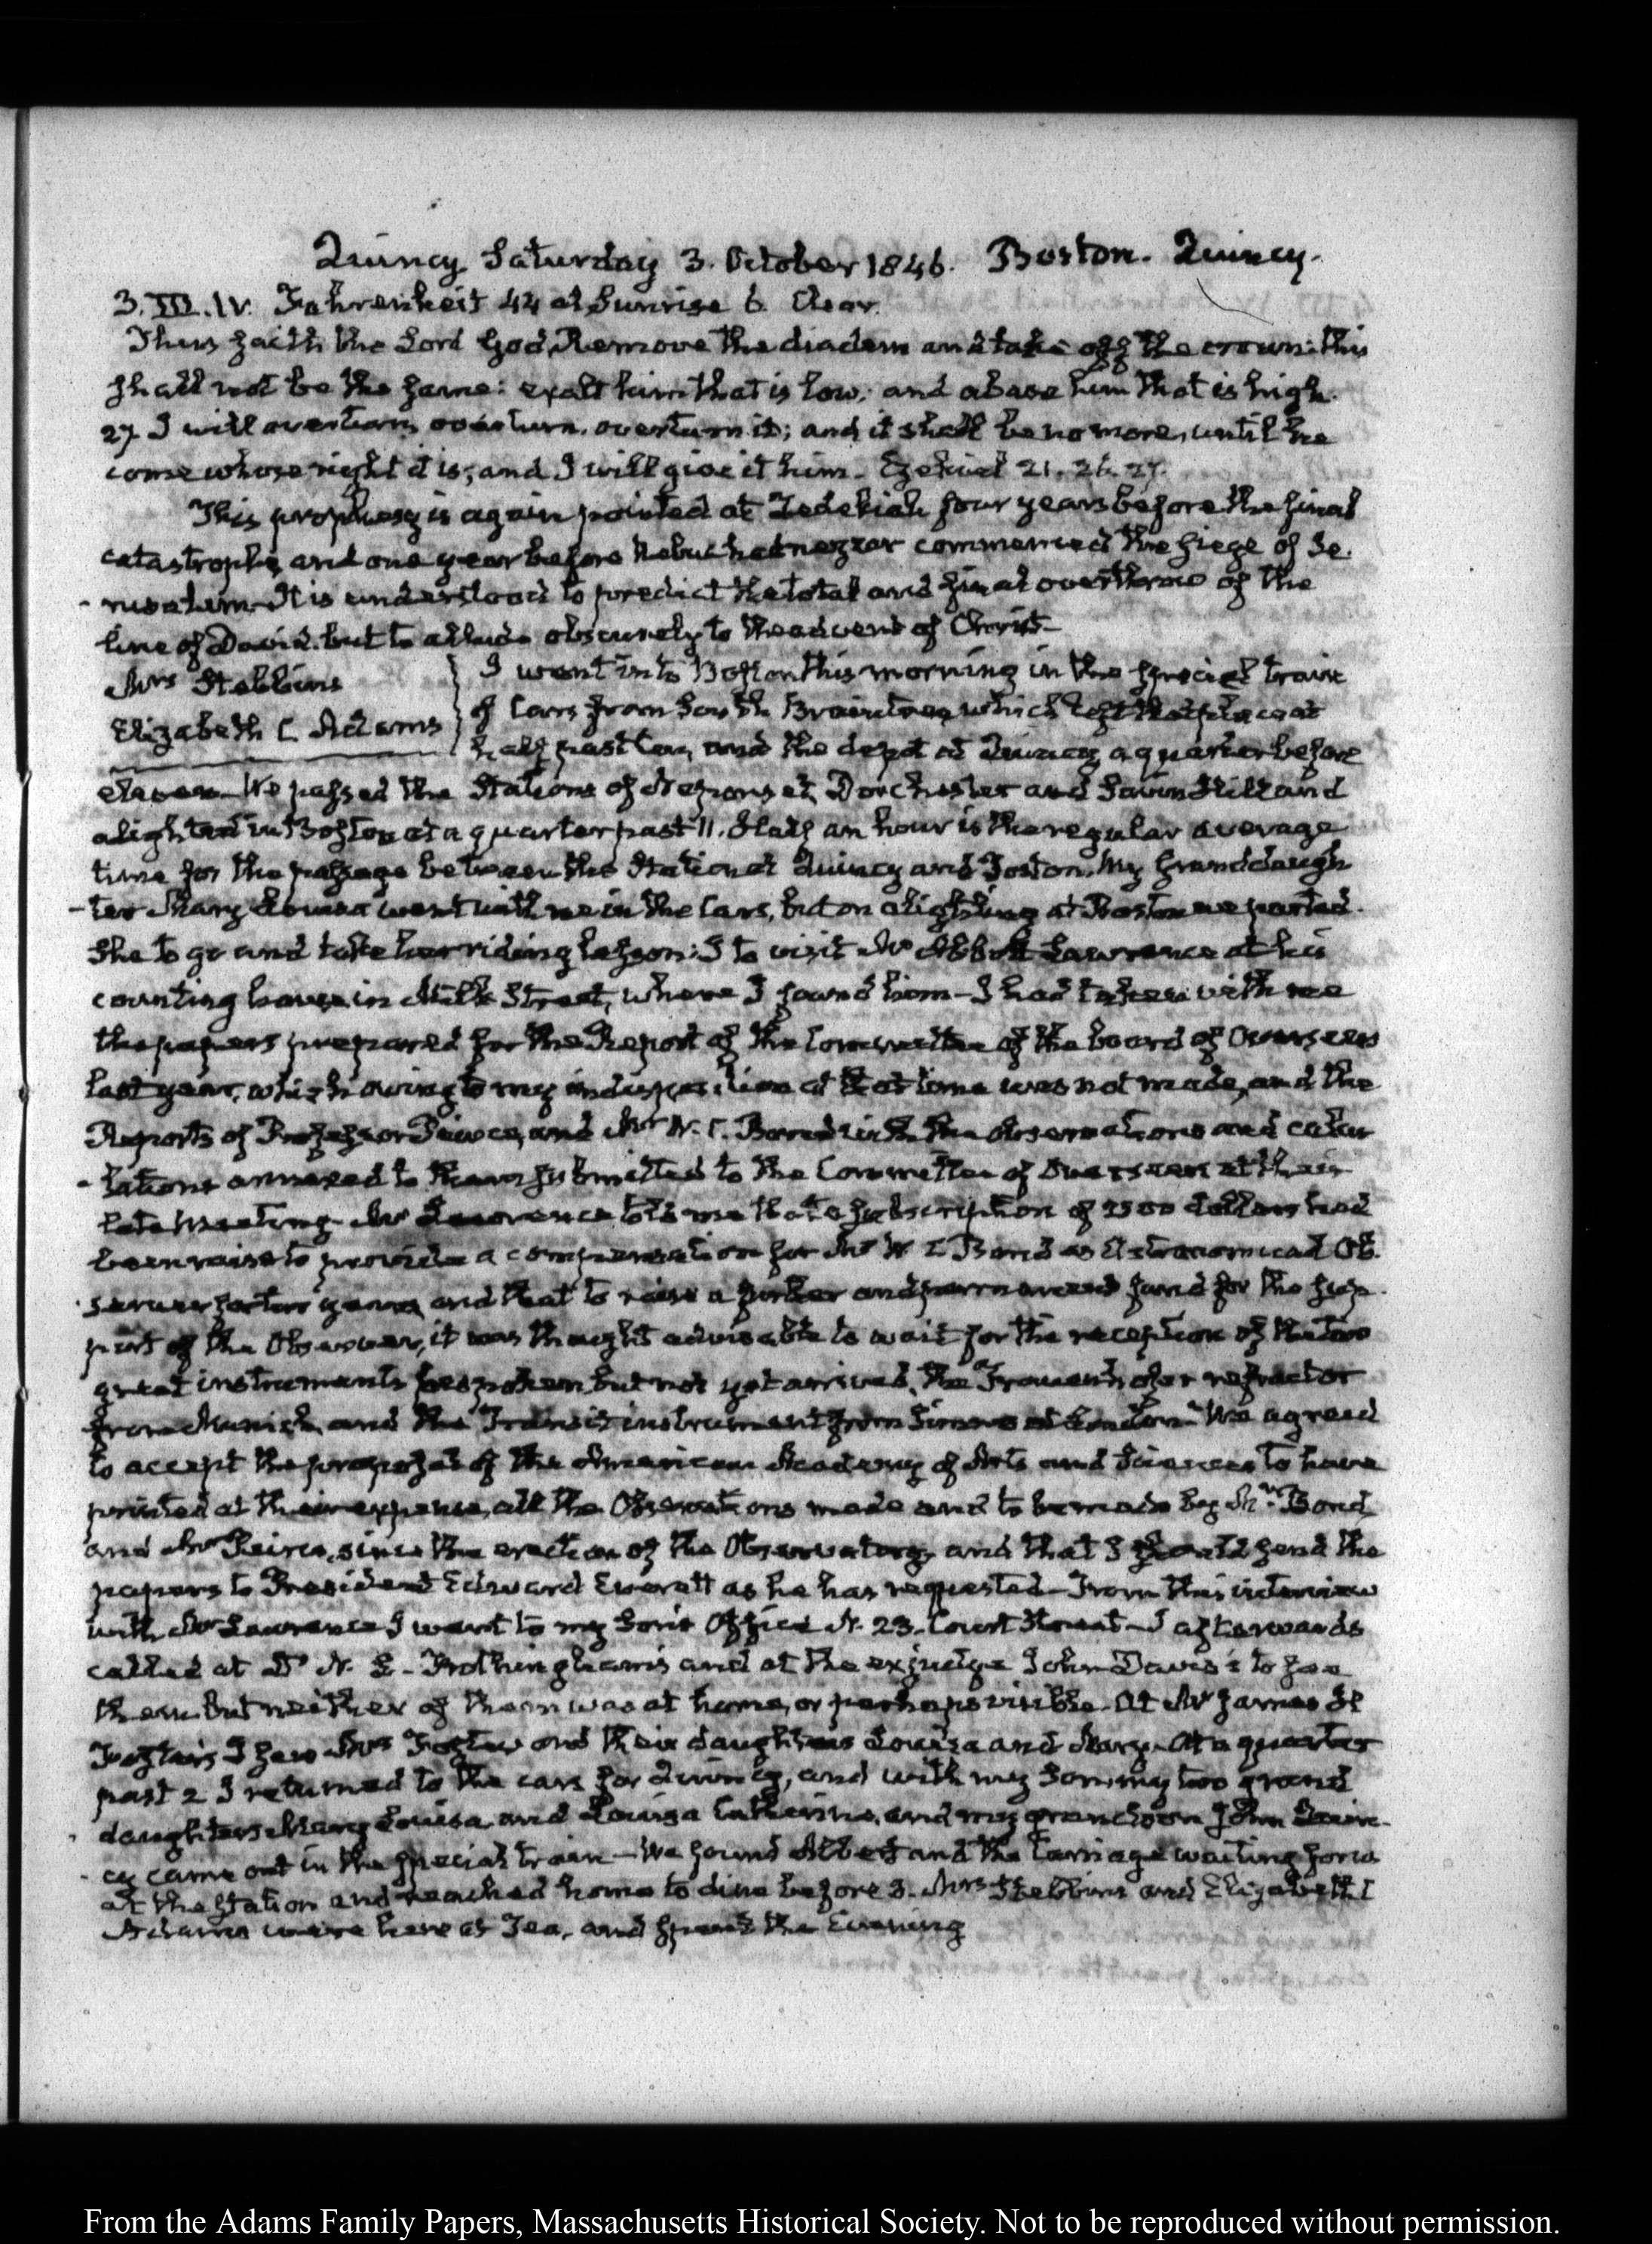 Quincy Saturday 3. October 1846. Boston. Quincy.
3. III. IV. Fahrenheit 44 at Sunrise 6. Clear.
Thus saith the Lord God, Remove the diadem and take off the crown: this
shall not be the same: exalt him that is low; and abase him that is high.
27. I will overturn, overturn, overturn it; and it shall be no more, until he
come whose right it is; and I will give it him. Ezekiel 21. 26. 27.
This prophesy is again pointed at Zedekiah four years before the final
catastrophe, and one year before Nebuchadnezzar commenced the siege of Je-
-rusalem. It is understood to predict the total and final overthrow of the
line of David. but to allude obscurely to the advent of Christ—
Mrs Stebbins
Elizabeth C. Adams
I went into Boston this morning in the special train
of Cars from South Braintree which left that place at
half past ten, and the depot at Quincy a quarter before
eleven— We passed the Stations of Neponset, Dorchester and Savin Hill and
alighted in Boston at a quarter past 11. Half an hour is the regular average
time for the passage between the Station at Quincy and Boston. My Granddaugh
-ter Mary Louisa went with me in the Cars, but on alighting at Boston we parted.
She to go and take her riding lesson: I to visit Mr Abbott Lawrence at his
counting house in Milk Street, where I found him— I had taken with me
the papers prepared for the Report of the Committee of the board of Overseers
last year, which owing to my indisposition at that time was not made, and the
Reports of Professor Peirce, and Mr W. C. Bond with the Observations and calcu
-lations annexed to them submitted to the Committee of Overseers at their
late Meeting— Mr Lawrence told me that a subscription of dollars had
been raised to provide a compensation for Mr W. C Bond as Astronomical Ob-
-server for years and that to raise a further and permanent fund for the sup-
port of the Observer, it was thought advisable to wait for the reception of the two
great instruments bespoken but not yet arrived, the Frauenhofer refractor
from Munich, and the Transit instrument from Simms at London— We agreed
to accept the proposal of the American Academy of Arts and Sciences to have
printed at their expense, all the Observations made and to be made by Mr Bond
and Mr Peirce, since the erection of the Observatory and that I should send the
papers to President Edward Everett as he has requested— From this interview
with Mr Lawrence I went to my Son's Office N. 23. Court Street— I afterwards
called at Dr N. L. Frothingham's and at the exjudge John Davis's to see
them but neither of them was at home, or perhaps visible. At Mr James H
Foster's I saw Mrs Foster and their daughters Louisa and Mary. At a quarter
past 2 I returned to the cars for Quincy, and with my Son, my two grand
daughters Mary Louisa and Louisa Catherine, and my grandson John Quin-
-cy came out in the special train— We found Albert and the Carriage waiting for us
at the station and reached home to dine before 3. Mrs Stebbins and Elizabeth C
Adams were here at Tea, and spent the Evening
From the Adams Family Papers, Massachusetts Historical Society. Not to be reproduced without permission.